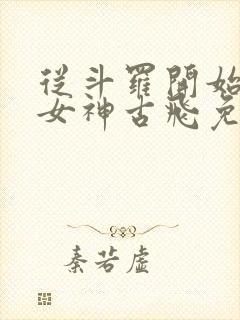 從斗羅開始
女神古飛免
秦若虛